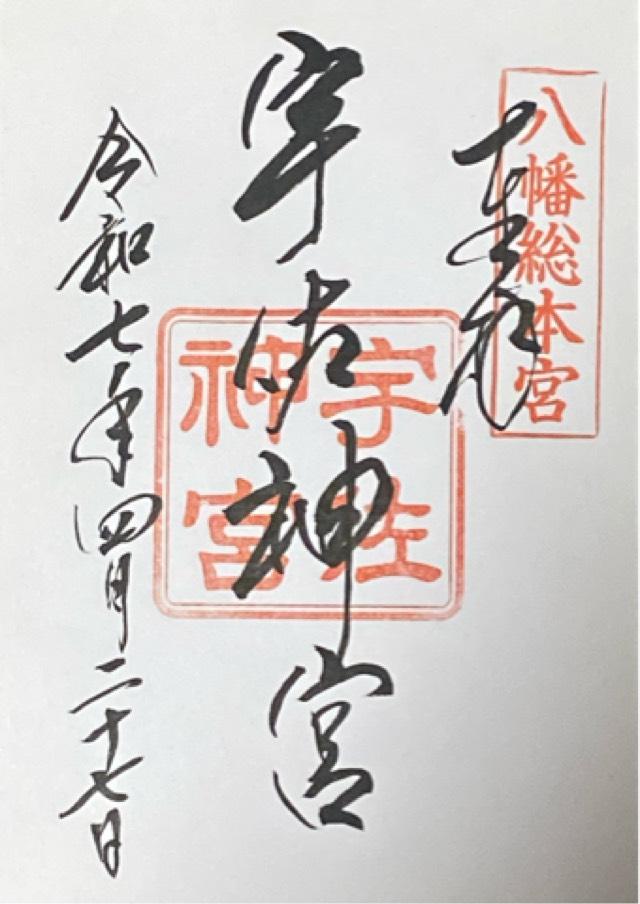 八幡総本宮
奉拝
宇佐神宮
宇佐
神宮
令和七年四月二十七日